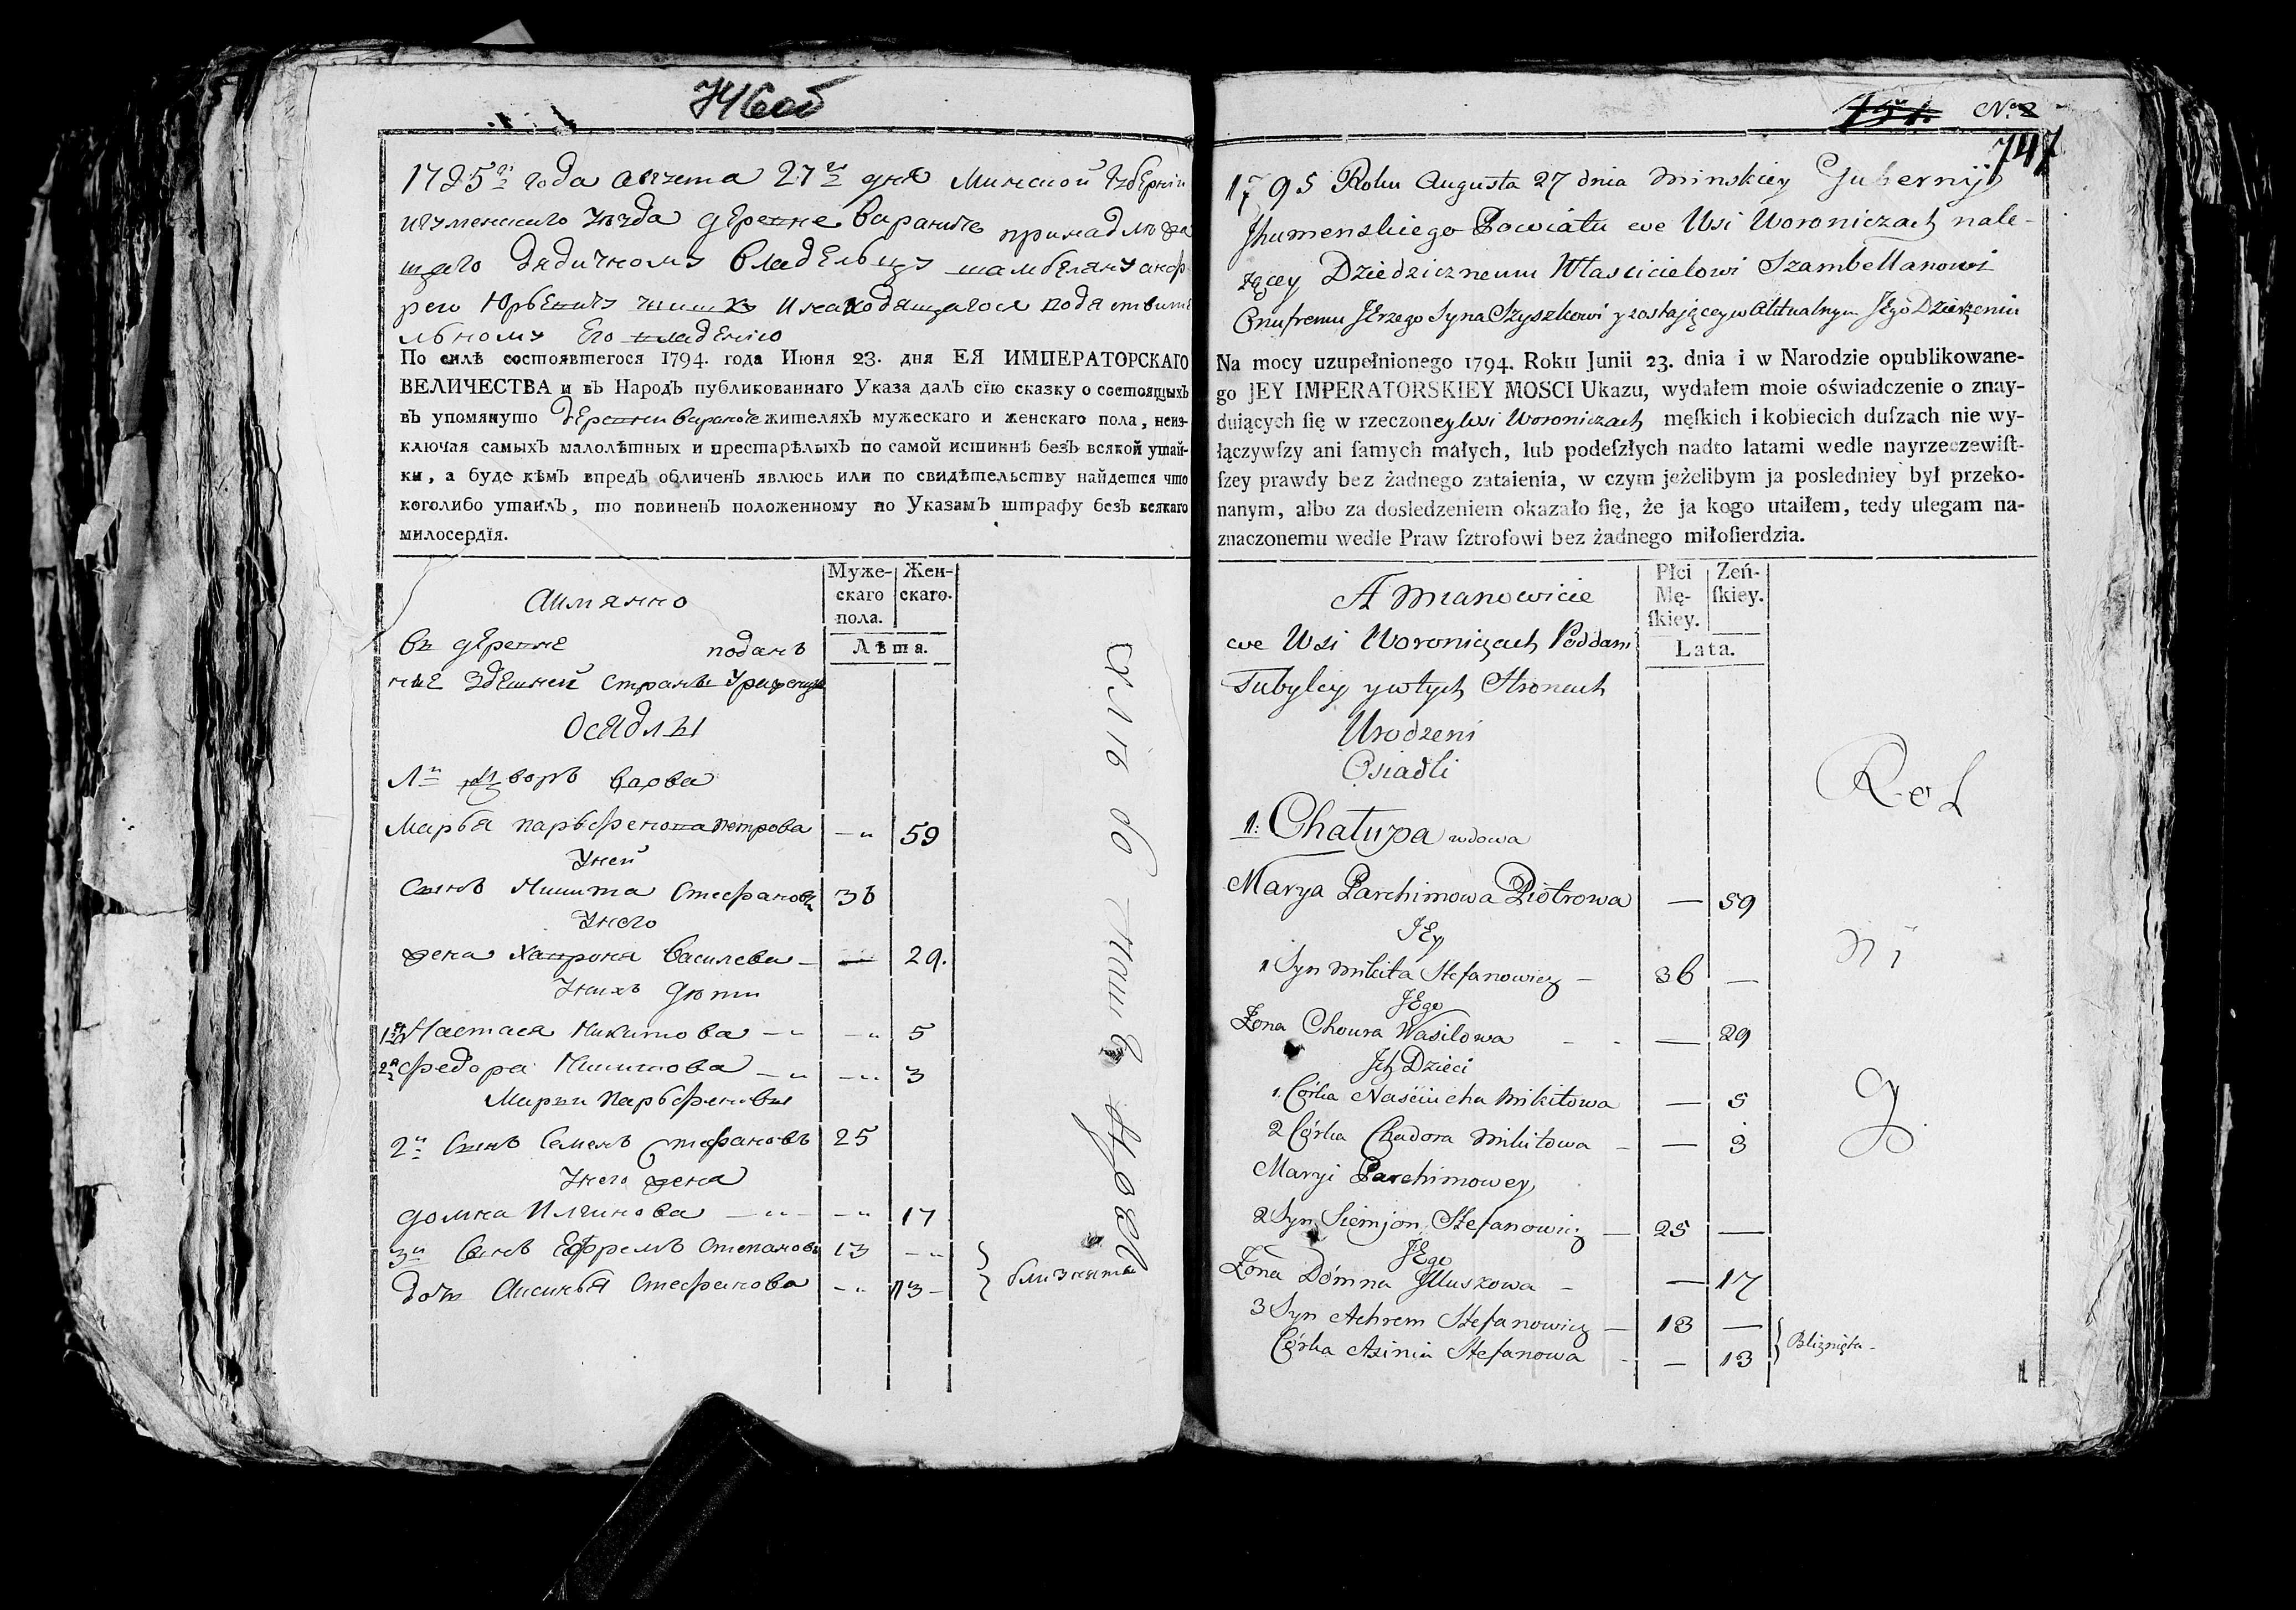 746об
1795го года августа 27го дня Минской губернии
игуменскаго уезда деревне Вараниче принадлежа
щаго дедичному владельцу шамбеляну аноф
рею Юрьевичу и находящагося подействите
льному Его владению
По силѣ состоявшегося 1794. года Июня 23. дня ЕЯ ИМПЕРАТОРСКАГО
ВЕЛИЧЕСТВА и въ Народъ публикованнаго Указа далъ сїю сказку о состоящихъ
въ упомянуто деревни Вараниче жителяхъ мужескаго и женскаго пола, неис-
ключая самыхъ малолѣтныхъ и престарѣлыхъ по самой истиннѣ безъ всякой утай-
ки, а буде кѣмъ впредъ обличенъ явлюсь или по свидѣтельству найдется что
коголибо утаилъ, то повиненъ положенному по Указамъ штрафу безъ всякаго
милосердїя.
Муже- Жен-
скаго скаго.
пола.
Лѣта.
аимянно
въ деревне поданъ
ные Здешней страны
Осядлы
1й дворъ вдова
Марья парьфенова петрова — 59
Уней
Сынъ Микита Стефановъ 36
Унего
жена Хапроня Василева — 29.
Унихъ дети
1я Настася Никитова — 5
2я Федора Микитова — 3
Марьи парьфеновы
2й Сынъ Семенъ Стефановъ 25
Унего жена
домна Илинова — 17
3й Сынъ Ефремъ Степановъ 13 —
дочь Аксинья Стефанова — 13
близняты
No. 2
747
1795 Roku Augusta 27 dnia Minskiey Gubernij
Jhumenskiego Powiatu we Wsi Woroniczach nale-
żącey Dziedzicznemu Włascicielowi Szambellanowi
Onufremu JErzego Syna Szyszkowi y zostającey w Aktualnym JEgo Dzierżeniu
Na mocy uzupełnionego 1794. Roku Junii 23. dnia i w Narodzie opublikowane-
go JEY IMPERATORSKIEY MOSCI Ukazu, wydałem moie oświadczenie o znay-
duiących ſię w rzeczoney Wsi Woroniczach męſkich i kobiecich duſzach nie wy-
łączywſzy ani ſamych małych, lub podeſzłych nadto latami wedle nayrzeczewiſt-
ſzey prawdy bez żadnego zataienia, w czym jeżelibym ja posledniey był przeko-
nanym, albo za dosledzeniem okazało ſię, że ja kogo utaiłem, tedy ulegam na-
znaczonemu wedle Praw ſztrofowi bez żadnego miłoſierdzia.
Płci Zeń-
Mę- ſkiey.
ſkiey.
Lata.
A Mianowicie
we Wsi Woroniczach Poddani
Tubylcy y w tych Stronach
Urodzeni
Osiadli
1: Chałupa wdowa
Marya Parchimowa Piotrowa — 59
JEy
1 Syn Mikita Stefanowicz — 36 —
JEgo
Żona Choura Wasilowa — 29
Jch Dzieci
1. Córka Naściucha Mikitowa — 5
2 Córka Chadora Mikitowa — 3
Maryi Parchimowey
2 Syn Siemjon Stefanowicz — 25 —
JEgo
Żona Domna Jlluszowa — 17
3 Syn Achrem Stefanowicz — 13 —
Córka Axinia Stefanowa — 13
Bliznięta